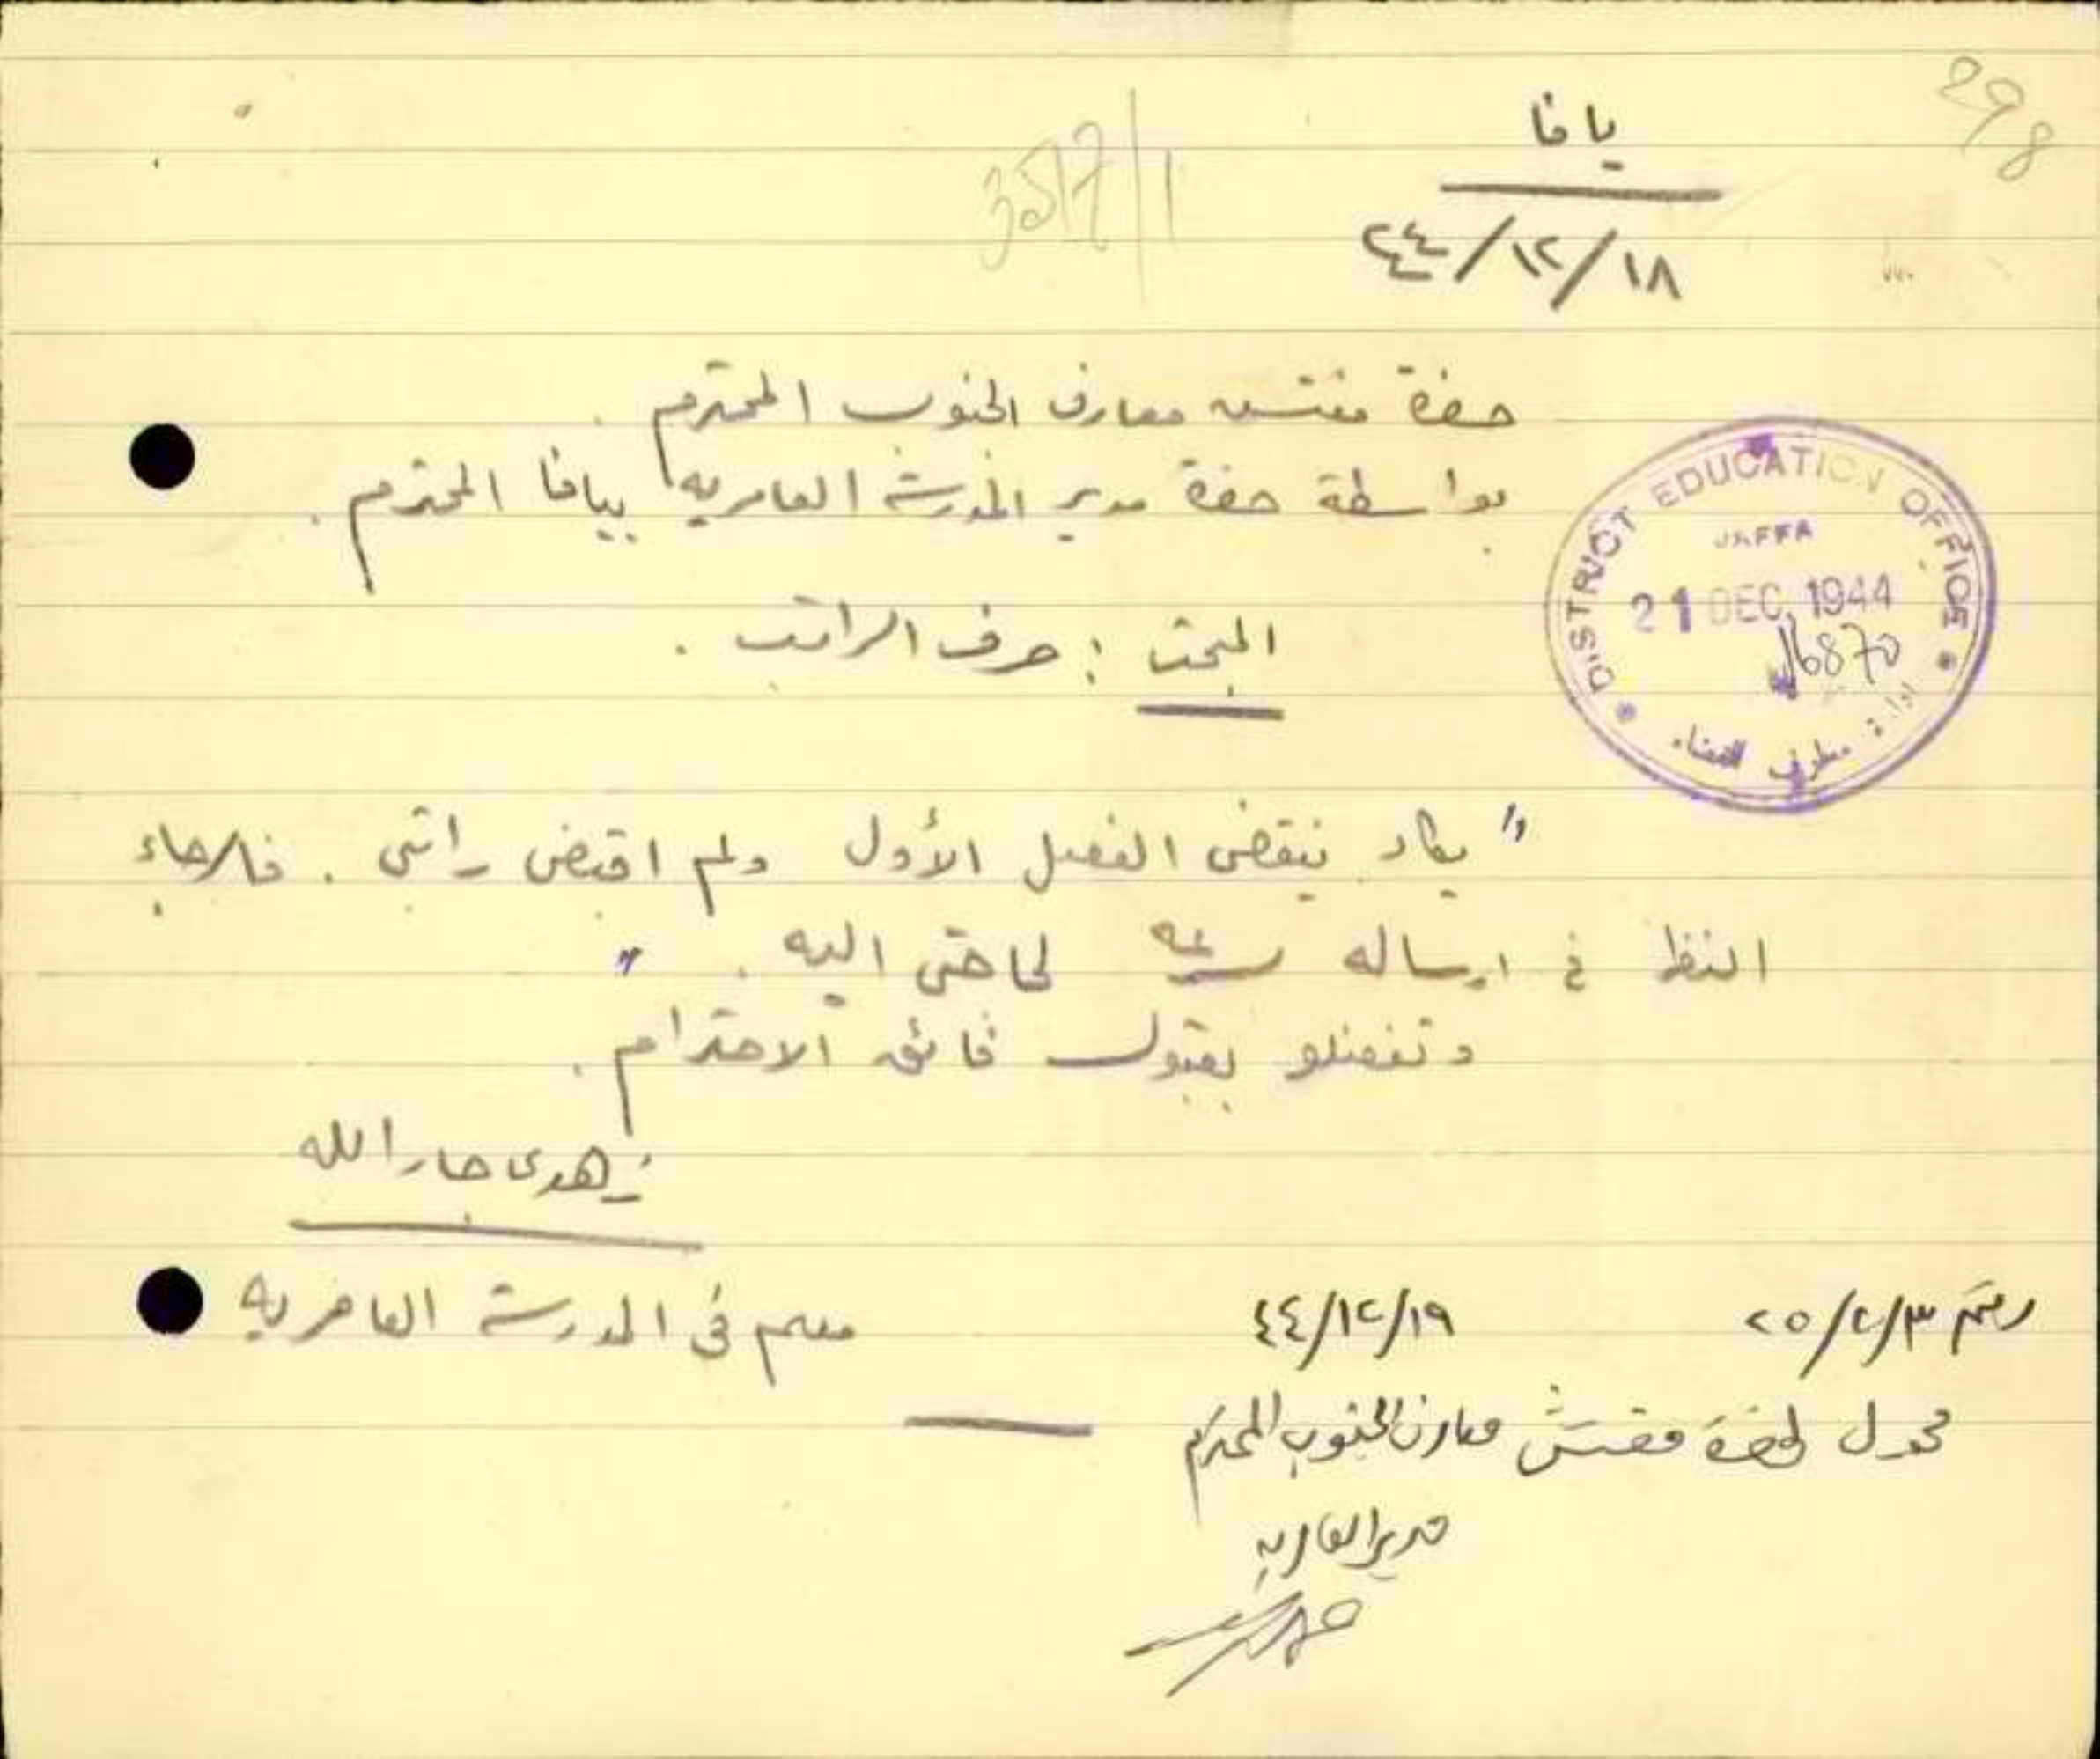 298
يافا
357/1
١٨/١٢/٤٤
حضرة مفتش معارف الجنوب المحترم.
بواسطة حضرة مدير المدرسة العامرية بيافا المحترم.
DISTRICT EDUCATION OFFICE
JAFFA
21 DEC. 1944
6870
ادارة معارف القضاء
المبحث : صرف الراتب.
" يكاد ينقضي الفصل الأول ولم اقبض راتبي. فالرجاء
النظر في ارساله بسرعة لحاجتي اليه. "
وتفضلو بقبول فائق الاحترام.
زهدي جار الله
معلم في المدرسة العامرية
رقم ٢٥/٢/٣
١٩/١٢/٤٤
محول لحضرة مفتش معارف الجنوب المحترم
مدير العامرية